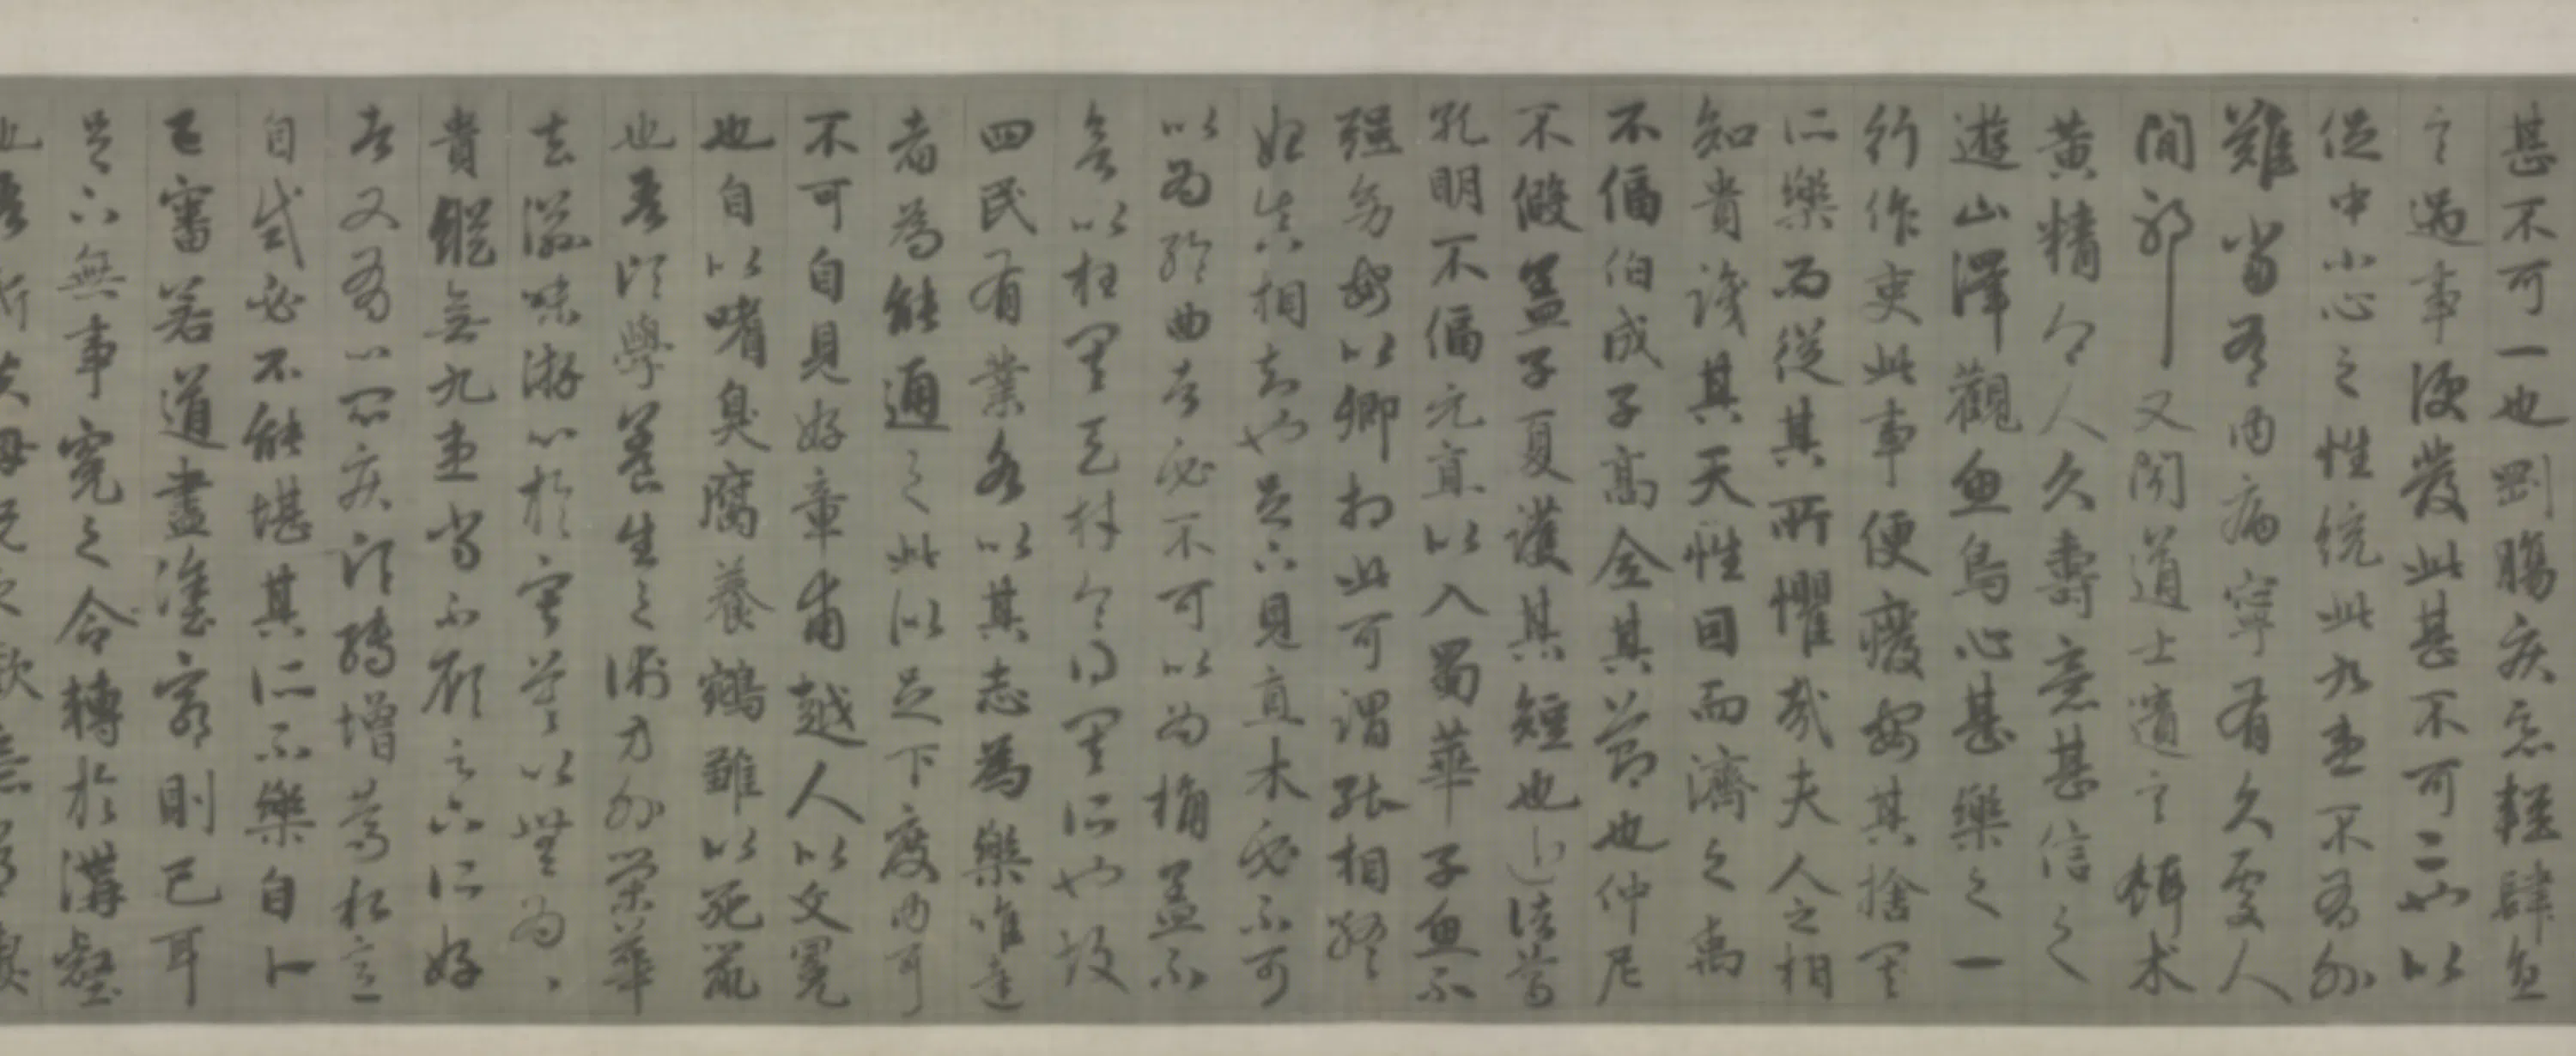 甚不可一也剛腸疾惡輕肆直
言遇事便發此甚不可二也以
促中小心之性統此九患不有外
難當有內病寧有久處人
間邪又聞道士遺言餌术
黃精令人久壽意甚信之
遊山澤觀魚鳥心甚樂之一
行作吏此事便癈安能捨其
所樂而從其所懼哉夫人之相
知貴識其天性因而濟之禹
不偪伯成子高全其節也仲尼
不假蓋子夏護其短也近諸葛
孔明不偪元直以入蜀華子魚不
強幼安以卿相此可謂能相終
始真相知也足下見直木必不可
以為輪曲者必不可以為桷蓋不
欲以枉其天材令得其所也故
四民有業各以其志為樂唯達
者為能通之此似足下度內耳
不可自見好章甫越人以文冕
也自以嗜臭腐養鵷雛以死鼠
也吾頃學養生之術方外榮華
去滋味游心於寂寞以無為為
貴縱無九患尚不顧足下所好
者又有心悶疾頃轉增篤私意
自試必不能堪其所不樂自卜
已審若道盡塗窮則已耳
足下無事冤之令轉於溝壑
也吾新失母兄之歡意常悽